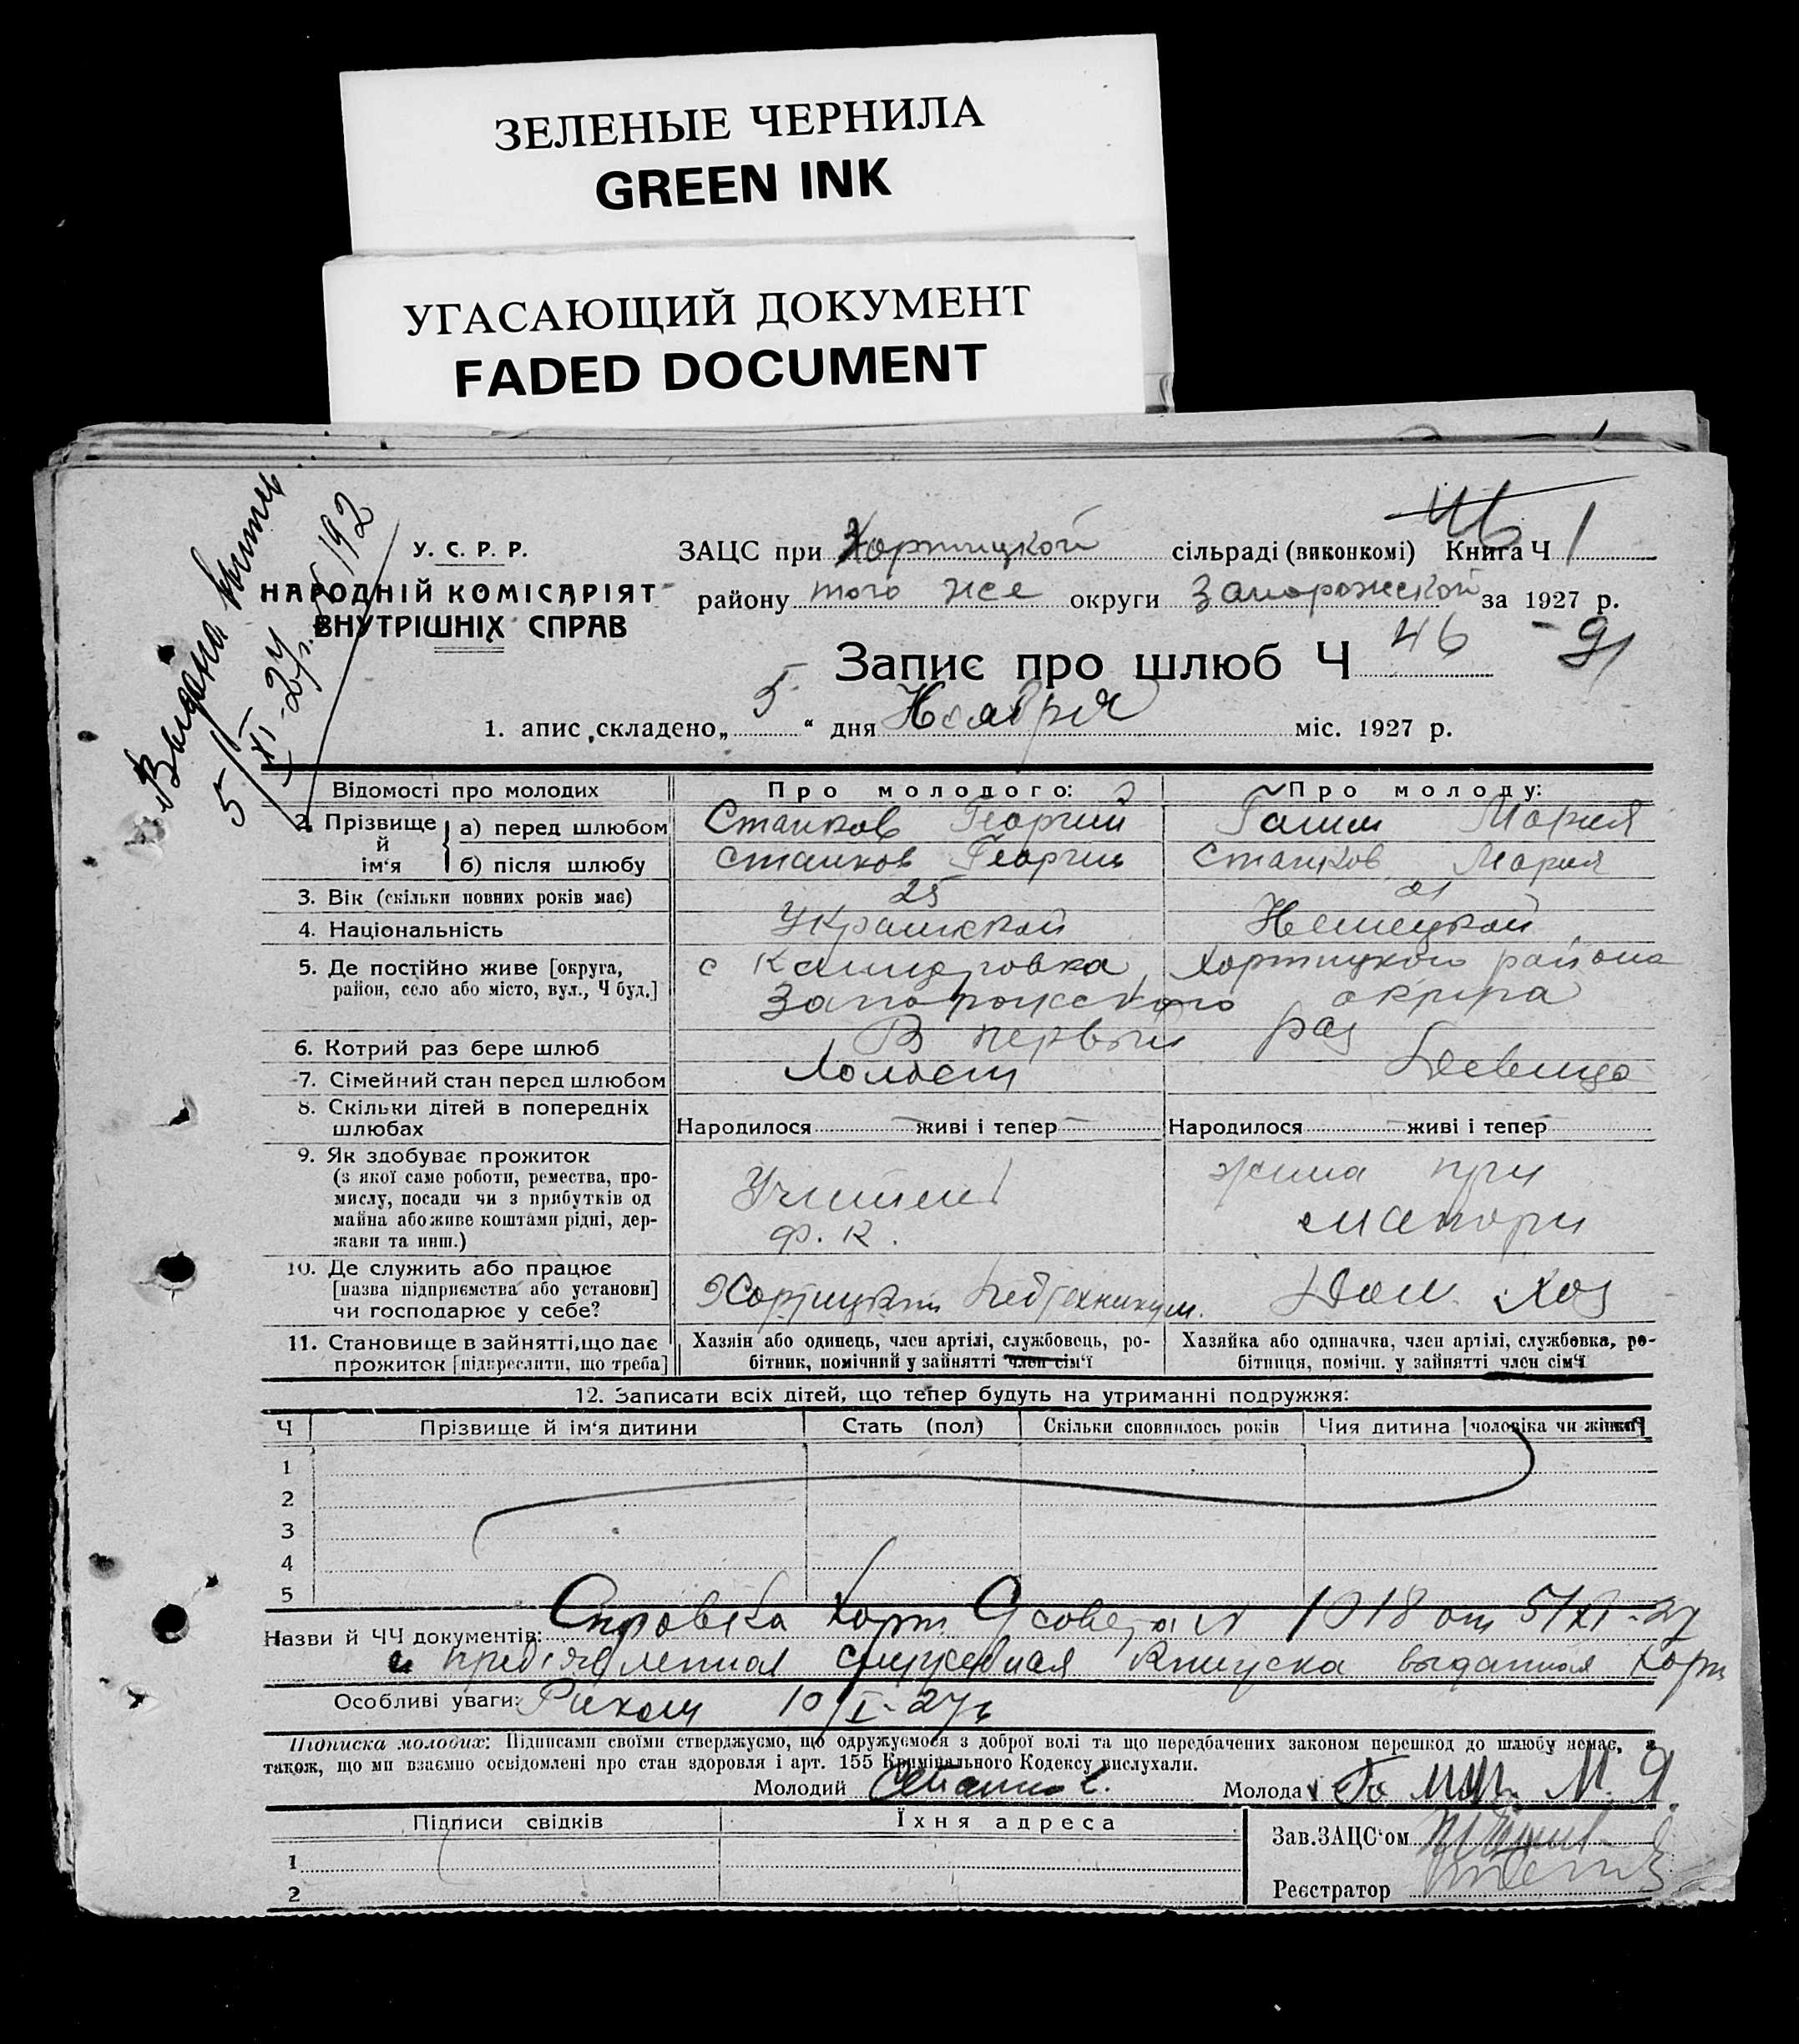 ЗЕЛЕНЫЕ ЧЕРНИЛА
GREEN INK
УГАСАЮЩИЙ ДОКУМЕНТ
FADED DOCUMENT
Выдана
5/XI-27 г. 192
У. С. Р. Р.
НАРОДНІЙ КОМІСАРІЯТ
ВНУТРІШНІХ СПРАВ
46
ЗАЦС при Хортицкой сільраді (виконкомі) Книга Ч 1
району того же округи Запорожской за 1927 р.
Запис про шлюб Ч 46 - 91
1. апис складено „ 5 “ дня Ноября міс. 1927 р.
Відомості про молодих Про молодого: Про молоду:
2. Прізвище й ім'я а) перед шлюбом Станков Георгий Мария
б) після шлюбу Станков Георгий Станков Мария
3. Вік (скільки повних років має) 25 21
4. Національність Немецкой
5. Де постійно живе [округа, с Хортицкого района
район, село або місто, вул., Ч буд.] Запорожского округа
6. Котрий раз бере шлюб В первый раз
7. Сімейний стан перед шлюбом Холост Девица
8. Скільки дітей в попередніх
шлюбах Народилося — живі і тепер — Народилося — живі і тепер —
9. Як здобуває прожиток
(з якої саме роботи, ремества, про-
мислу, посади чи з прибутків од
майна або живе коштами рідні, дер-
жави та инш.)
Учитель
Ф. К.
жила при
матери
10. Де служить або працює
[назва підприємства або установи]
чи господарює у себе?
Хортицкий Педтехникум. Дом. хоз
11. Становище в зайнятті, що дає Хазяін або одинець, член артілі, службовець, ро- Хазяйка або одиначка, член артілі, службовка, ро-
прожиток [підкреслити, що треба] бітник, помічний у зайнятті член сім'ї бітниця, помічн. у зайнятті член сім'ї
12. Записати всіх дітей, що тепер будуть на утриманні подружжя:
Ч Прізвище й ім'я дитини Стать (пол) Скільки сповнилось років Чия дитина [чоловіка чи жінки]
1
2
3
4
5
Назви й ЧЧ документів: Справка Хорт. С/совета N 1018 от 5/XI-27
и предъявленная служебная выданная Хорт
Особливі уваги: Риком 10/I-27г
Підписка молодих: Підписами своїми стверджуємо, що одружуємося з доброї волі та що передбачених законом перешкод до шлюбу немає, а
також, що ми взаємно освідомлені про стан здоровля і арт. 155 Кримінального Кодексу вислухали.
Молодий Станков. Молода М. Я.
Підписи свідків Їхня адреса
Зав. ЗАЦС'ом
1
2
Реєстратор